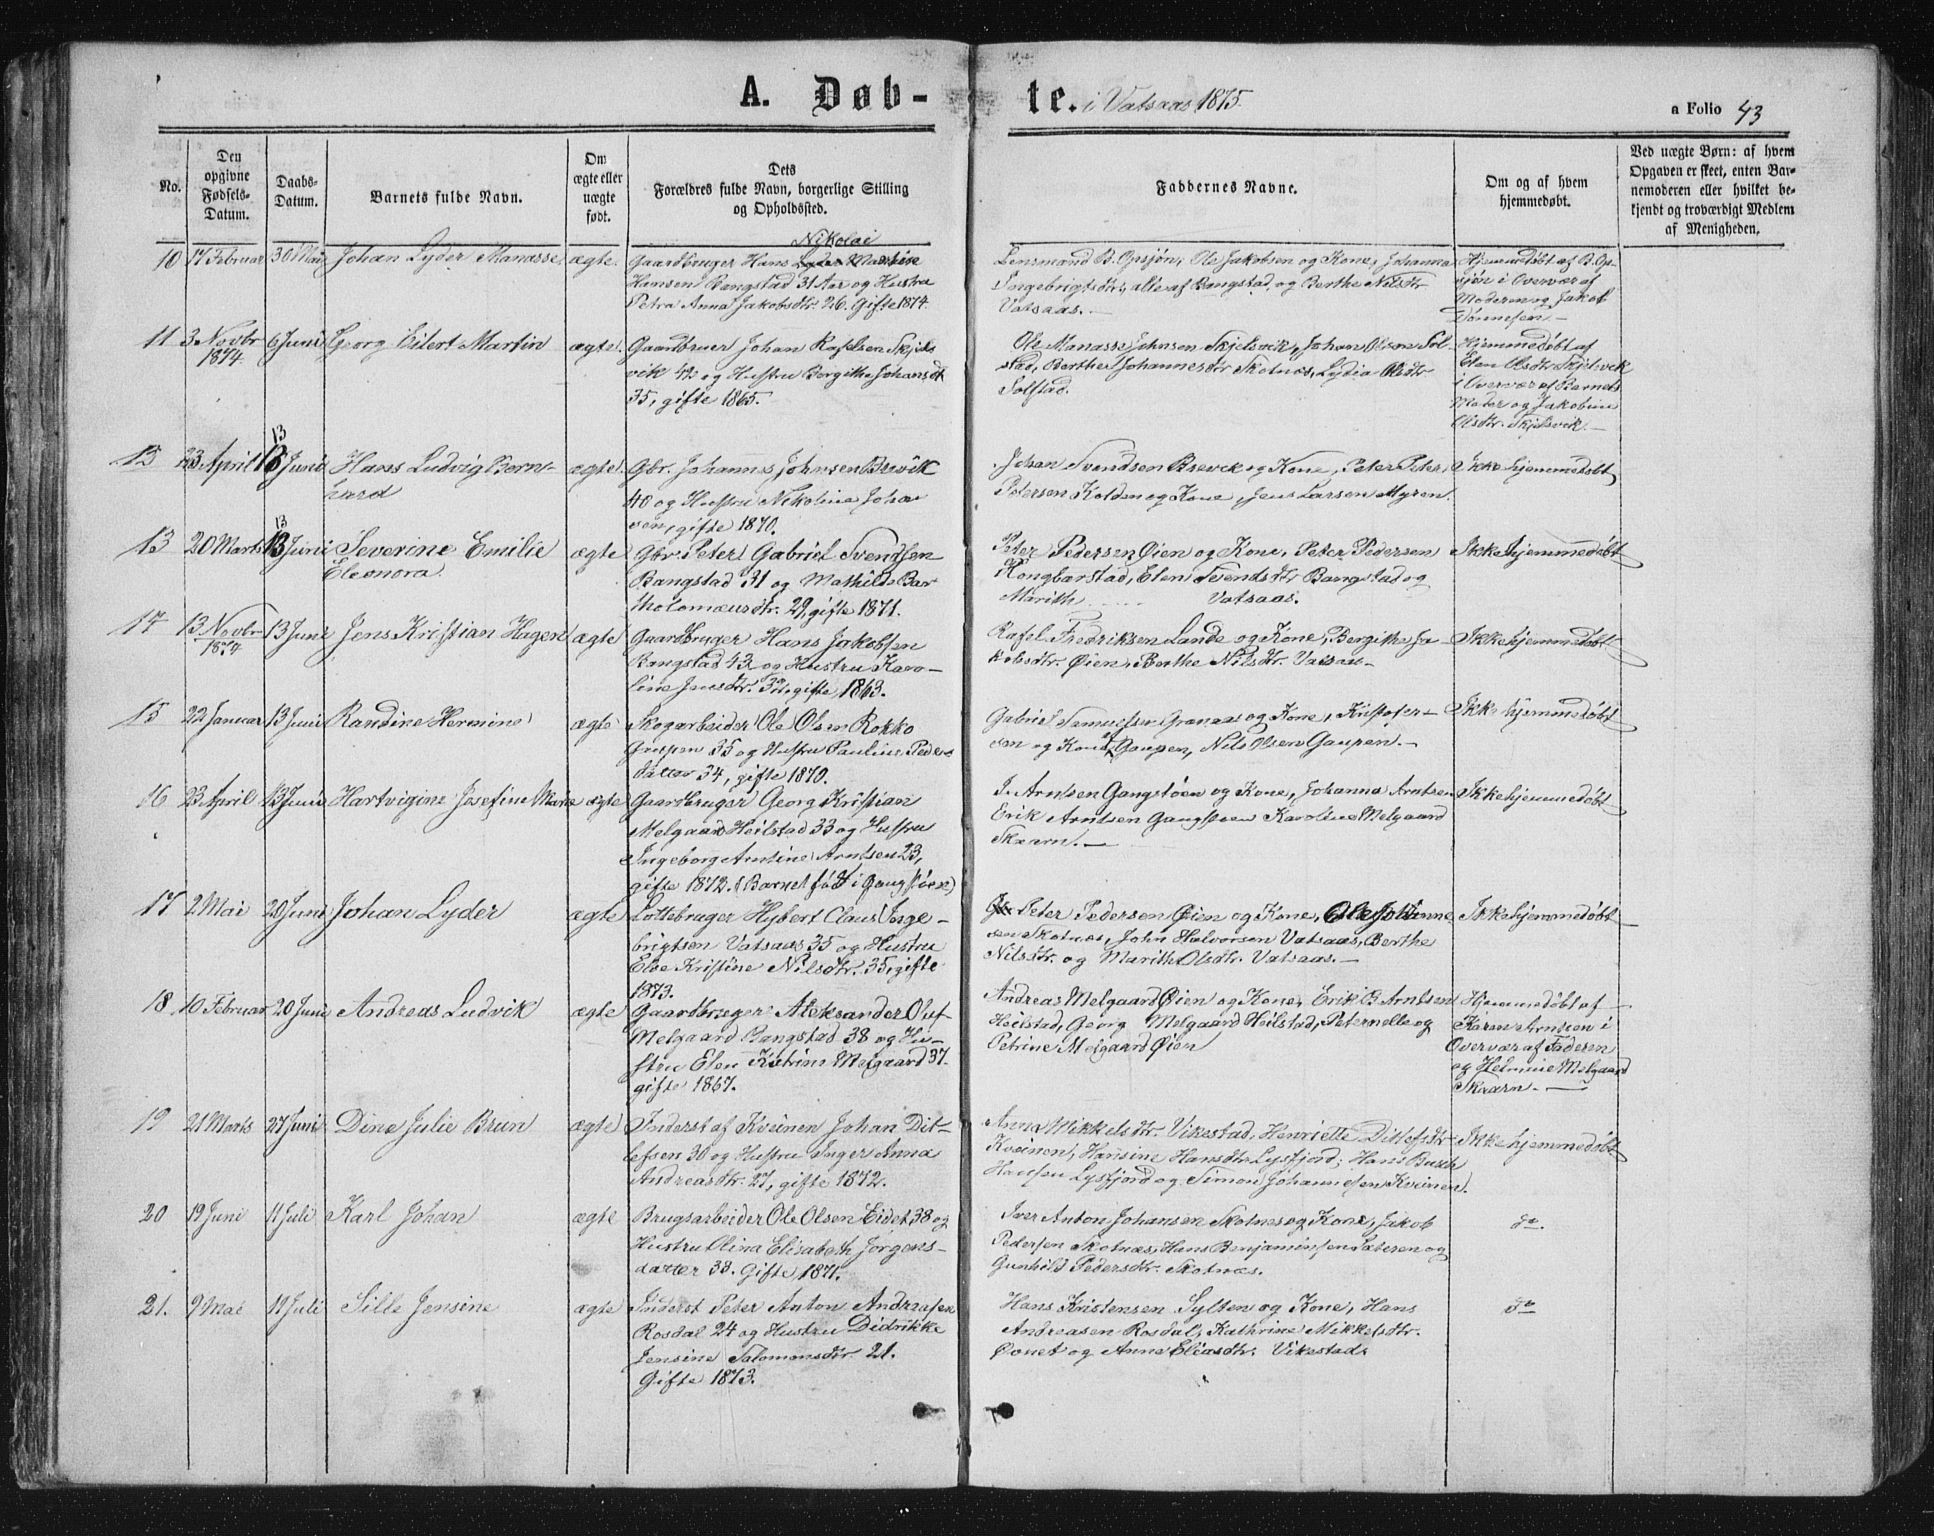 A. Døb-
te. i Vatsaas 1875.
a Folio 43
No.
Den
opgivne
Fødsels-
Datum.
Daabs-
Datum.
Barnets fulde Navn.
Om
ægte eller
uægte
født.
Dets
Forældres fulde Navn, borgerlige Stilling
og Opholdssted.
Faddernes Navne.
Om og af hvem
hjemmedøbt.
Ved uægte Børn: af hvem
Opgaven er skeet, enten Bar-
nemoderen eller hvilket be-
kjendt og troværdigt Medlem
af Menigheden.
10 17 Februar 30 Mai Johan Lyder Manasse ægte.
Nikolai
Gaardbruger Hans
Hansen Bangstad 31 Aar og Hustru
Petra Anna Jakobsdtr. 26. Gifte 1874.
Lensmand B. Opsjøn, Ole Jakobsen og Kone, Johanna
Ingebrigtsdtr, alle af Bangstad, og Berthe Nilsdtr
Vatsaas. —
Hjemmedøbt af B. Op-
sjøn i Overvær af
Moderen og Jakob
Tønnesen —
11 3 Novbr 6 Juni Georg Eilert Martin ægte.
1874.
Gaardbruer Johan Rafelsen Skjels
vik 42 og Hustru Bergithe Johansdt
35, gifte 1865.
Ole Manasse Johnsen Skjelsvik, Johan Olsen Sol-
stad, Berthe Johannesdtr Skotnæs, Lydia Olsdtr
Solstad.
Hjemmedøbt af
Elen Olsdtr Skjelsvik
i Overvær af Barnets
Moder og Jakobine
Olsdtr. Skjelsvik. —
12 23 April 13 Juni Hans Ludvig Bern- ægte.
hard
Gbr. Johannes Johnsen Brevik
40 og Hustru Nikoline Johan
sen, gifte 1870.
Johan Svendsen Brevik og Kone, Peter Peter
Petersen Kolden og Kone, Jens Larsen Myren.
Ikke hjemmedøbt
13 20 Marts 13 Juni Severine Emilie ægte
Eleonora.
Gbr. Peter Gabriel Svendsen
Bangstad 31 og Mathilde Bar
tholomæusdtr. 29, gifte 1871.
Peter Pedersen Øien og Kone, Peter Pedersen
Kongbarstad, Elen Svendsdtr Bangstad og
Marith Vatsaas.
Ikke hjemmedøbt
14 13 Novbr 13 Juni Jens Kristian Hagen ægte
1874
Gaardbruger Hans Jakobsen
Bangstad 43 og Hustru Karo-
line Jensdtr. 32, gifte 1863.
Rafel Fredriksen Lande og Kone, Bergithe Ja-
kobsdtr. Øien, Berthe Nilsdtr. Vatsaas —
Ikke hjemmedøbt
15 22 Januar 13 Juni Randine Hermine ægte
Skogarbeider Ole Olsen Rokko
Gaupen 35 og Hustru Pauline Peders
datter 34, gifte 1870.
Gabriel Samuelsen Granaas og Kone, Kristofer-
sen og Kone Gaupen, Nils Olsen Gaupen. —
Ikke hjemmedøbt
16 23 April 13 Juni Hartvigine Josefine Marie ægte
Gaardbruger Georg Kristian
Melgaard Heilstad 33 og Hustru
Ingeborg Arntine Arntsen 23,
gifte 1872. (Barnet født i Gangstøen)
Arntsen Gangstøen og Kone, Johanna Arntsen
Erik Arntsen Gangstøen Karoline Melgaard
Skaarn. —
Ikke hjemmedøbt
17 2 Mai 20 Juni Johan Lyder ægte
Lottebruger Hybert Claus Inge-
brigtsen Vatsaas 35 og Hustru
Else Kristine Nilsdtr. 35, gifte
1873.
Peter Pedersen Øien og Kone, Ole Johanne
sen Skotnes, John Halvorsen Vatsaas, Berthe
Nilsdtr. og Marith Olsdtr. Vatsaas. —
Ikke hjemmedøbt
18 10 Februar 20 Juni Andreas Ludvik ægte
Gaardbruger Aleksander Oluf
Melgaard Bangstad 38 og Hu-
stru Elen Katrine Melgaard 37.
gifte 1867.
Andreas Melgaard Øien og Kone, Erik B. Arntsen
Heilstad, Georg Melgaard Heilstad, Peternelle og
Petrine Melgaard Øien
Hjemmedøbt af
Karen Arntsen i
Overvær af Faderen
og Helmine Melgaard
Skaarn. —
19 21 Marts 27 Juni Dine Julie Brun ægte
Inderst af Kveinen Johan Dit-
lefsen 30 og Hustru Inger Anna
Andreasdtr. 27, gifte 1872.
Anna Mikkelsdtr. Vikestad, Henriette Ditlefsdtr
Kveinen, Hansine Hansdtr Lysfjord, Hans Buch
Hansen Lysfjord og Simon Johannesen Kveinen.
Ikke hjemmedøbt
20 19 Juni 11 Juli Karl Johan ægte
Brugsarbeider Ole Olsen Eidet 38 og
Hustru Olina Elisabeth Jørgens-
datter 38. Gifte 1871.
Iver Anton Johansen Skotnes og Kone, Jakob
Pedersen Skotnæs, Hans Benjaminsen Sæteren og
Gunhild Pedersdtr. Skotnæs.
do.
21. 9 Mai 19 Juli Sille Jensine ægte
Inderst Peter Anton Andreasen
Rosdal 24 og Hustru Didrikke
Jensine Salomonsdtr. 21.
Gifte 1873.
Hans Kristensen Sylten og Kone, Hans
Andreasen Rosdal, Kathrine Mikkelsdtr.
Øvnet og Anne Eliasdtr. Vikestad.
do